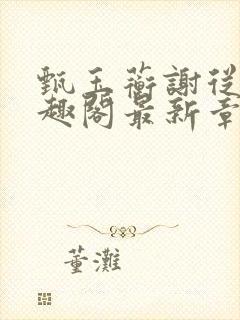 甄玉蘅謝從
趣閣最新章
董灘